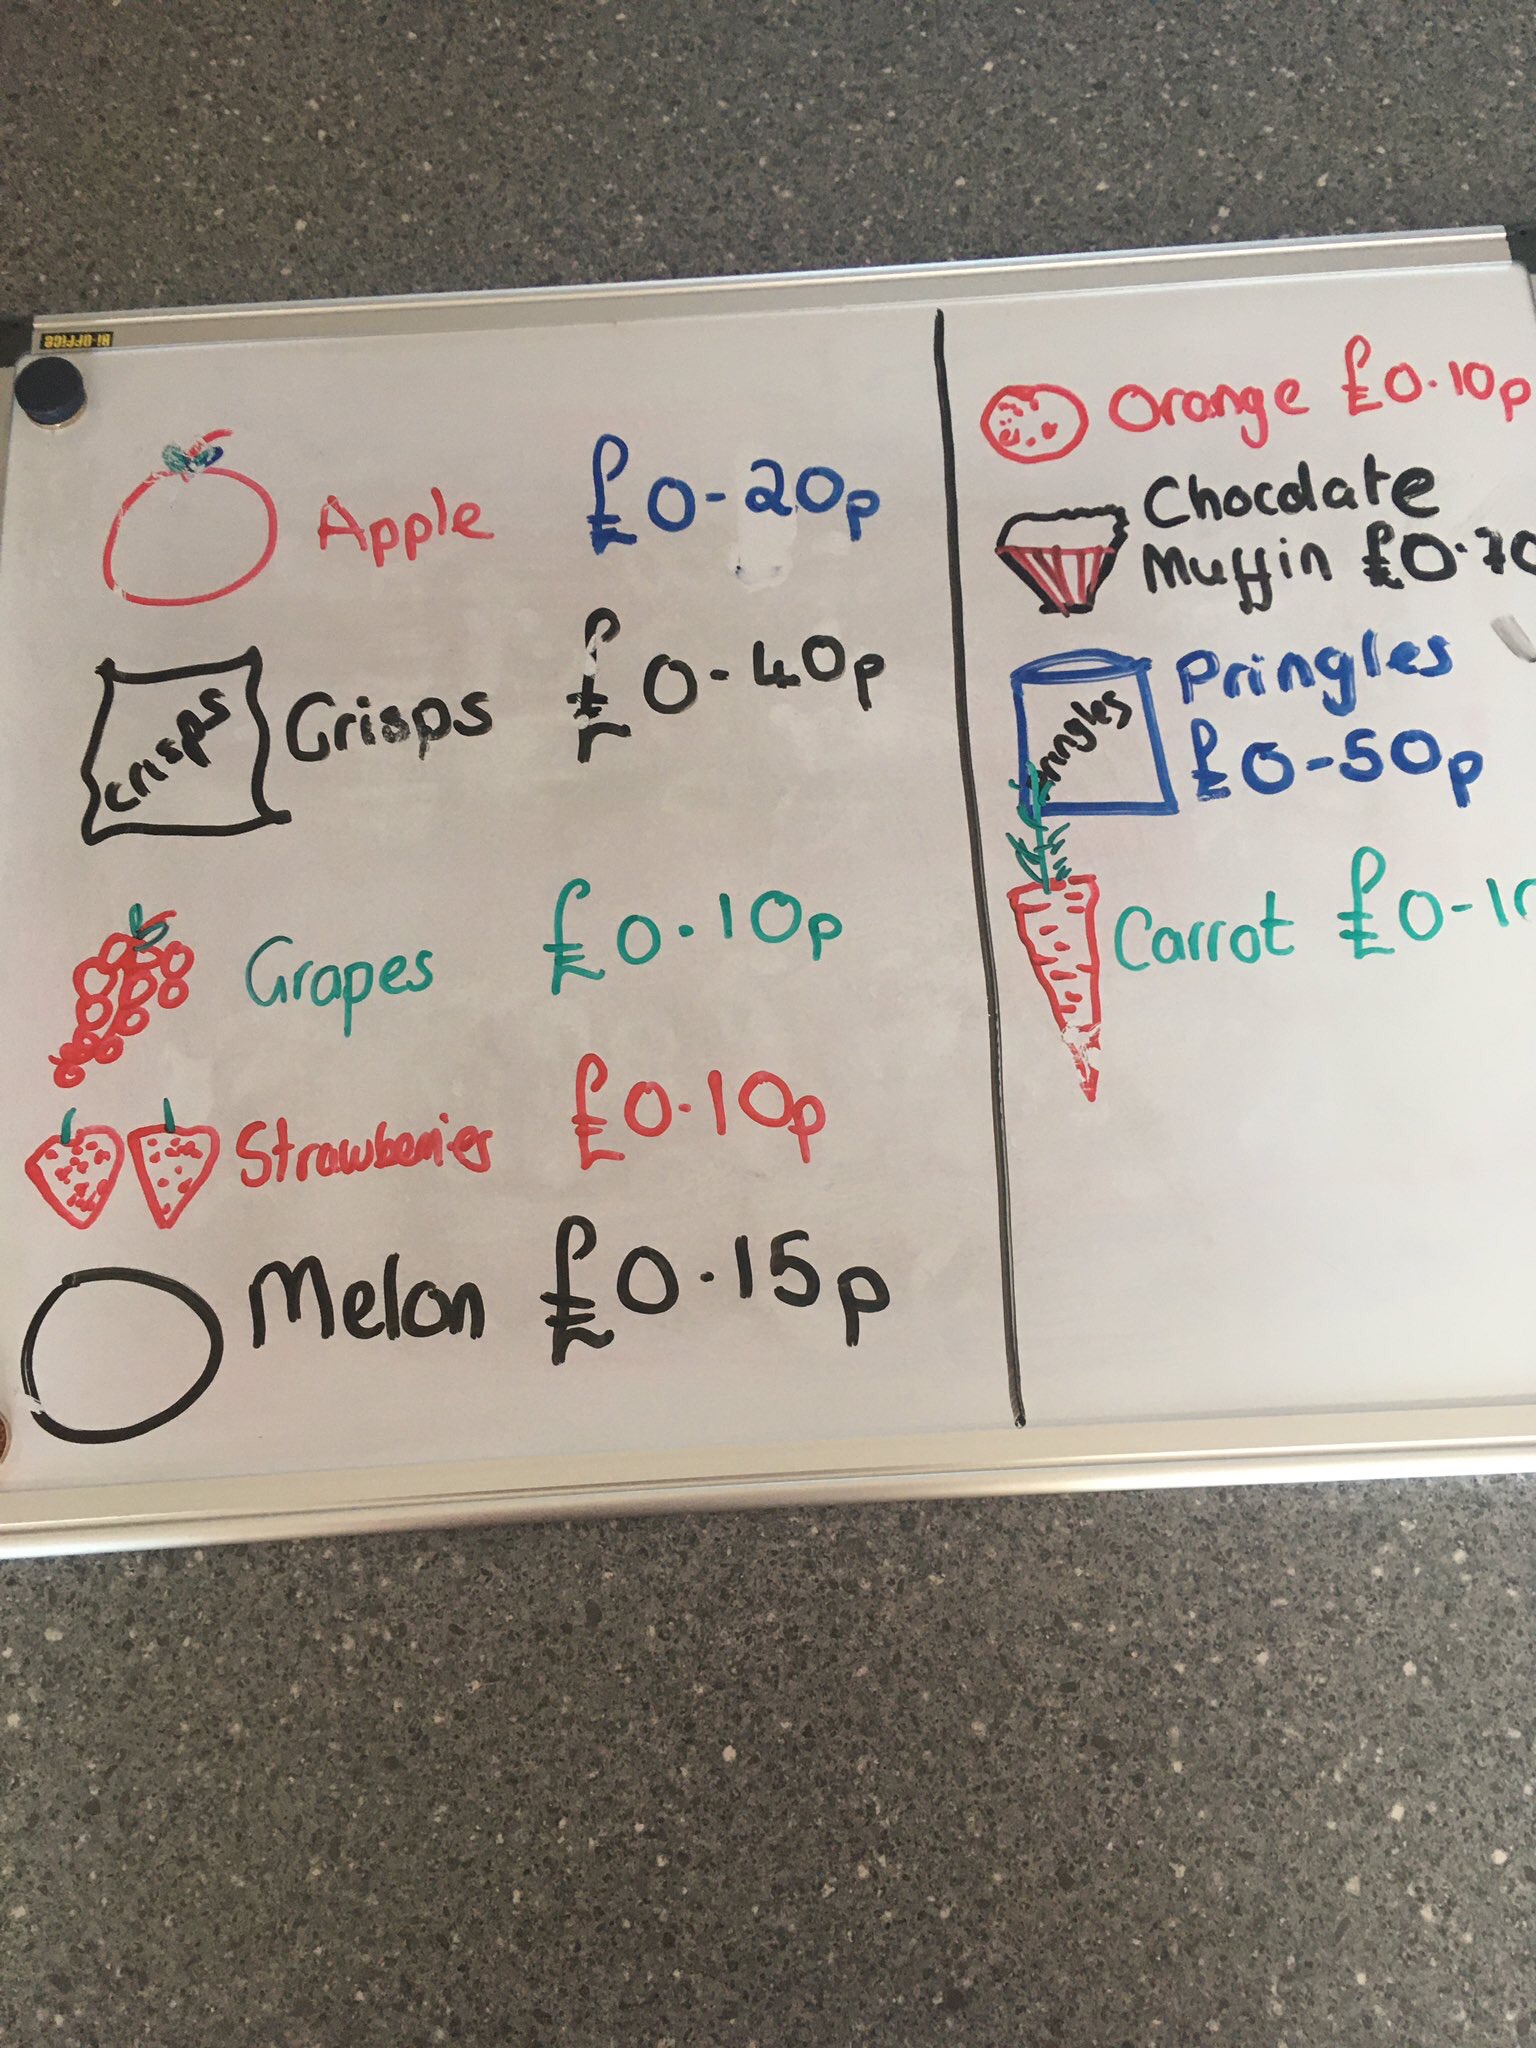 BI-OFFICE
Apple £0-20p
crisps
Crisps £0-40p
Grapes £0.10p
Strawberries £0.10p
Melon £0.15p
Orange £0.10p
Chocolate
Muffin £0.70
Pringles
Pringles
£0-50p
Carrot £0-10